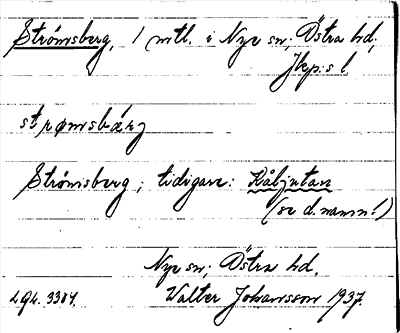 Strömsberg, 1 mtl. i Nye sn; Östra hd,
Jkp:s l.
strømsbærj
Strömsberg; tidigare: Kåljutan
(se d. namn!)
Nye sn; Östra hd,
Lga. 3304. Walter Johansson 1937.